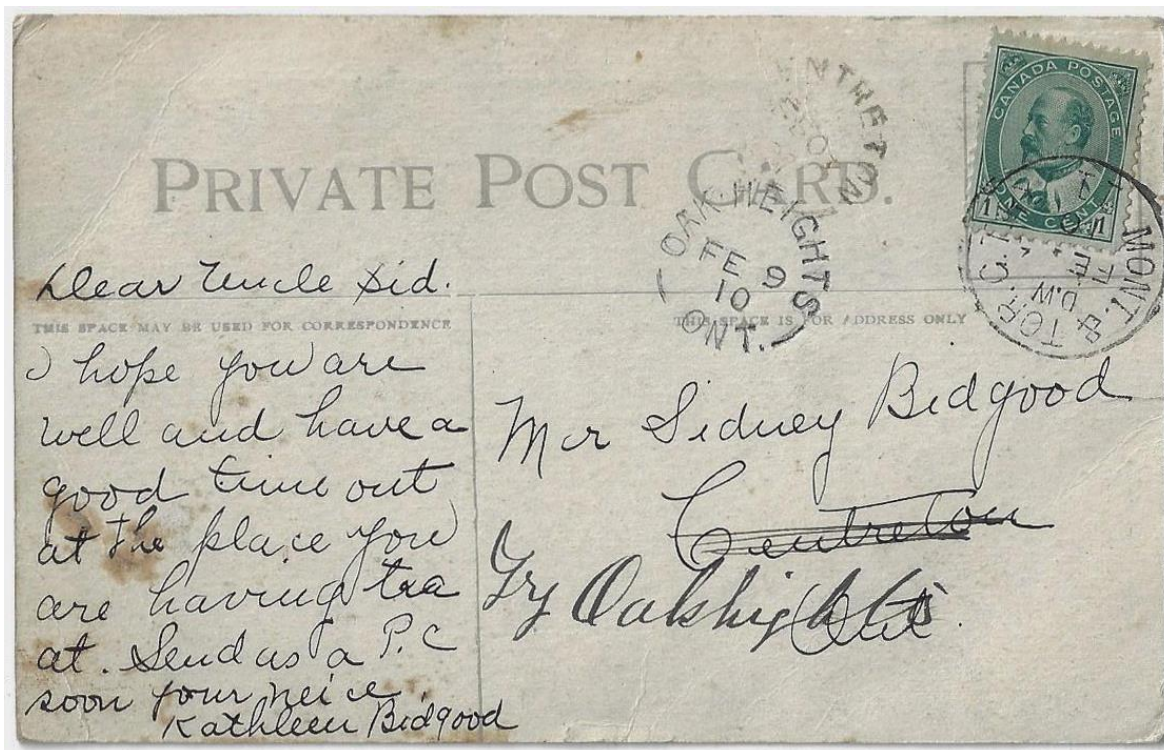 PRIVATE POST CARD.
CANADA POSTAGE
ONE CENT
1 1
ENTRETON
OAK HEIGHTS
FE 9
10
ONT.
MONT. & TOR. G.T.
Dear Uncle Sid.
THIS SPACE MAY BE USED FOR CORRESPONDENCE
I hope you are
well and have a
good time out
at the place you
are having tea
at. Send us a P.C
soon your neice
Kathleen Bidgood
THIS SPACE IS FOR ADDRESS ONLY
Mr Sidney Bidgood
Centreton
Try Oakhights
Ont.